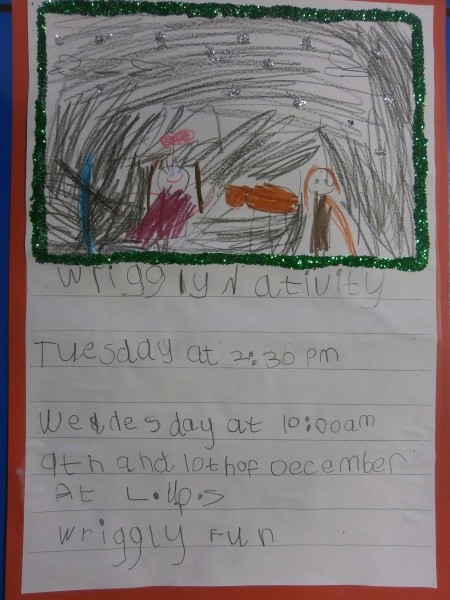 Wriggly Nativity
Tuesday at 2:30 pm
Wednesday at 10:00am
9th and 10th of December
At L.ll.p.s
Wriggly Fun